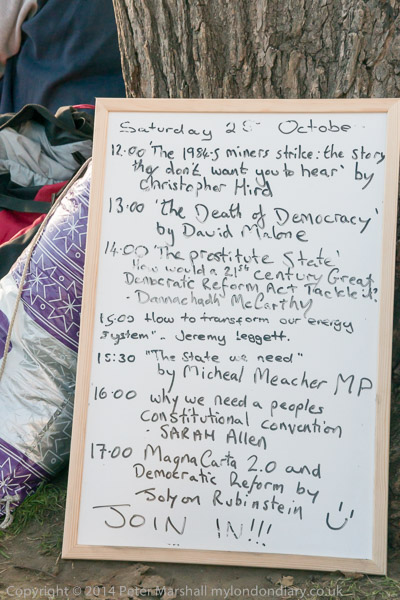 Saturday 25 Octobe
12:00 'The 1984-5 miners strike: the story
they don't want you to hear' by
Christopher Hird
13:00 'the Death of Democracy'
by David Malone
14:00 'The prostitute State'
How would a 21st Century Great
Democratic Reform Act Tackle it?
- Donnachadh McCarthy
15:00 How to transform our energy
system" - Jeremy Leggett.
15:30 "The State we need"
by Micheal Meacher MP
16:00 why we need a peoples
constitutional convention
- SARAH Allen
17:00 Magna Carta 2.0 and
Democratic Reform by
Solyon Rubinstein
JOIN IN!!!
Copyright © 2014 Peter Marshall mylondondiary.co.uk